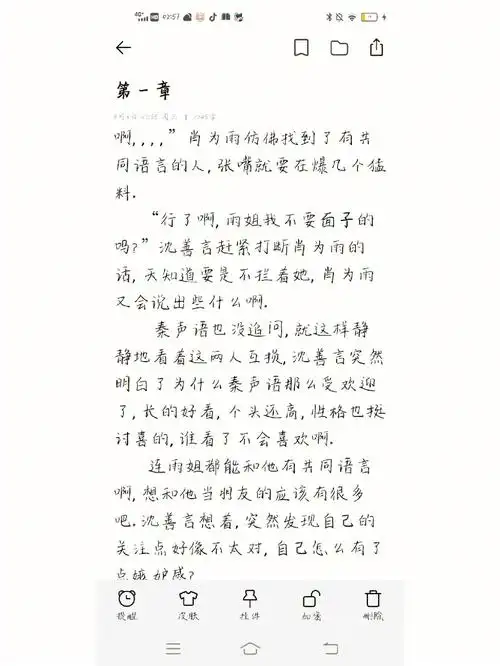 03:57
第一章
啊,,,,”肖为雨仿佛找到了有共
同语言的人,张嘴就要在爆几个猛
料.
“行了啊,雨姐我不要面子的
吗?”沈善言赶紧打断肖为雨的
话,天知道要是不拦着她,肖为雨
又会说出些什么啊.
秦声语也没追问,就这样静
静地看着这两人互损,沈善言突然
明白了为什么秦声语那么受欢迎
了,长的好看,个头还高,性格也挺
讨喜的,谁看了不会喜欢啊.
连雨姐都能和他有共同语言
啊,想和他当朋友的应该有很多
吧.沈善言想着,突然发现自己的
关注点好像不太对,自己怎么有了
点嫉妒感?
提醒 皮肤 挂件 加密 删除